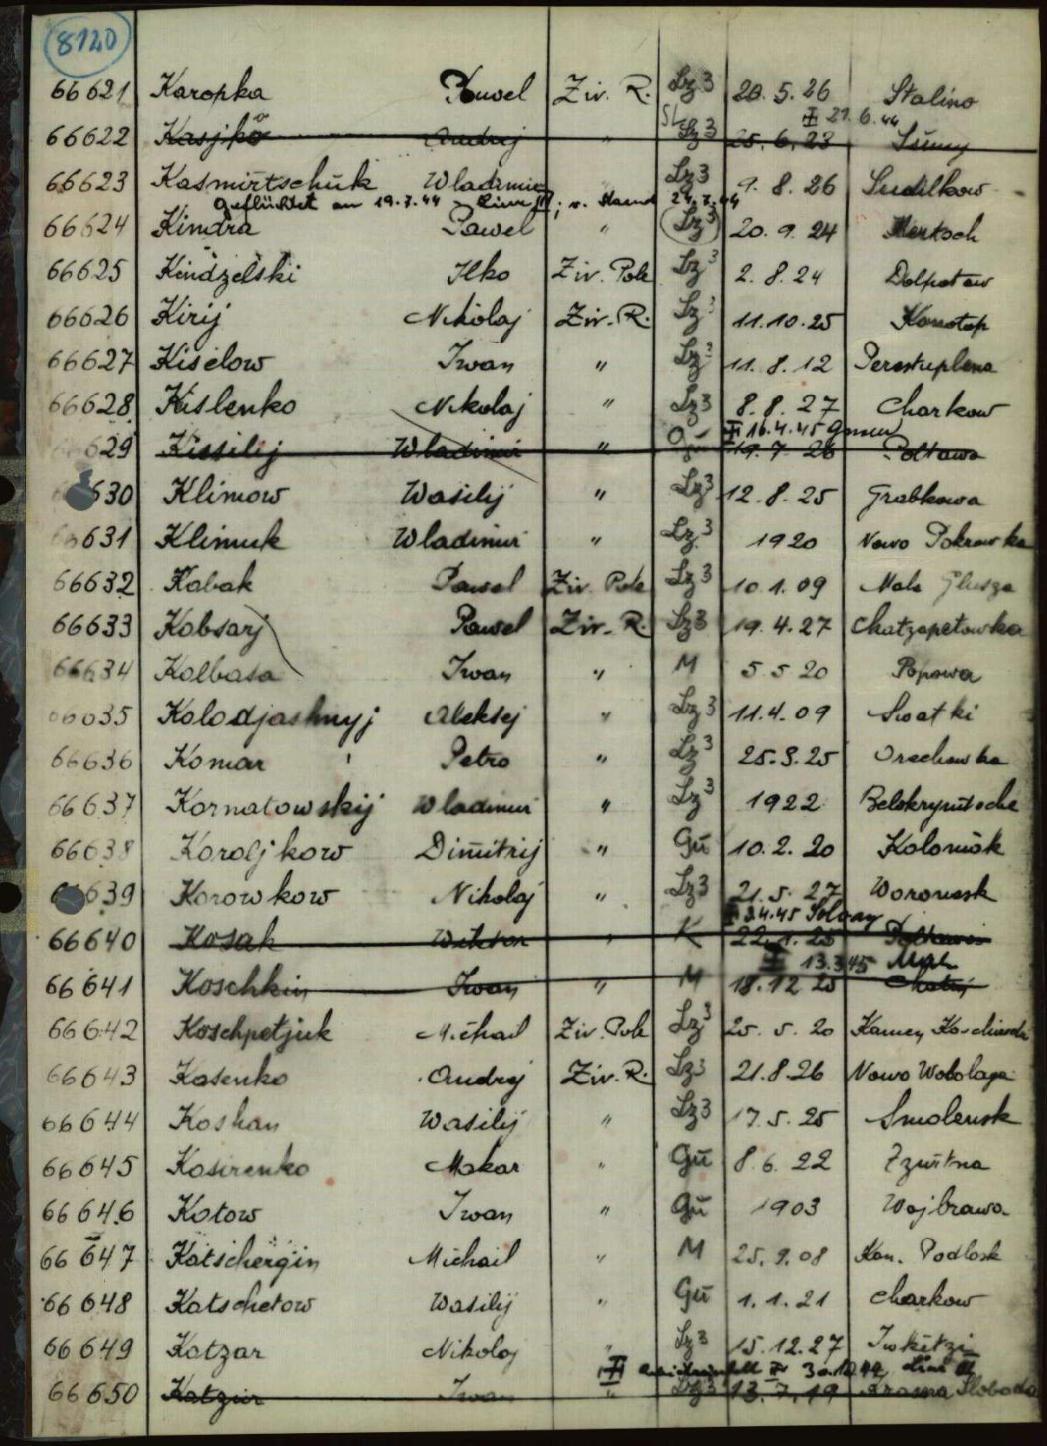 8120
66621 Karopka Pawel Ziv. R. Lz 3 20.5.26 Stalino
21.6.44
66622 Kasjko Andrej " Lz 3 25.6.23
66623 Kasmirtschuk Wladimir " Lz 3 9.8.26 Sudilkow
geflüchtet am 19.7.44 24.7.44
66624 Kindra Pawel " Lz 3 20.9.24
66625 Kindzelski Ilko Ziv. Pole Lz 3 2.8.24
66626 Kirij Nikolaj Ziv. R. Lz 3 11.10.25 Konotop
66627 Kiselow Iwan " Lz 3 11.8.12
66628 Kislenko Nikolaj " Lz 3 8.8.27 Charkow
16.4.45 Gusen
629 Kissilij Wladimir " 19.7.26 Poltawa
630 Klimow Wasilij " Lz 3 12.8.25 Grabkowa
631 Klimuk Wladimir " Lz 3 1920 Nowo Pokrowka
66632 Kobak Pawel Ziv. Pole Lz 3 10.1.09 Mala Glusza
66633 Kobsarj Pawel Ziv. R. Lz 3 19.4.27 Chatzapetowka
66634 Kolbasa Iwan " M 5.5.20 Popowa
66635 Kolodjashnyj Aleksej " Lz 3 11.4.09 Swatki
66636 Komar Petro " Lz 3 Orechowka
66637 Kornatowskij Wladimir " Lz 3 1922
66638 Koroljkow Dimitrij " Gu 10.2.20
66639 Korowkow Nikolaj " Lz 3 21.5.27
Solvay
66640 Kosak Wiktor " K 22.1.25
13.3.45
66641 Koschkin Iwan " M 18.12.25
66642 Koschpetjuk Michail Ziv. Pole Lz 3 25.5.20
66643 Kosenko Andrej Ziv. R. Lz 3 21.8.26 Nowo Wodolaga
66644 Koshan Wasilij " Lz 3 17.5.25 Smolensk
66645 Kosirenko Makar " Gu 8.6.22
66646 Kotow Iwan " Gu 1903
66647 Kotschergin Michail " M 25.9.08
66648 Kotschetow Wasilij " Gu 1.1.21 Charkow
66649 Kotzar Nikolaj " Lz 3 15.12.27
66650 Kotzur Iwan " Lz 3 13.7.19 Krasna Sloboda